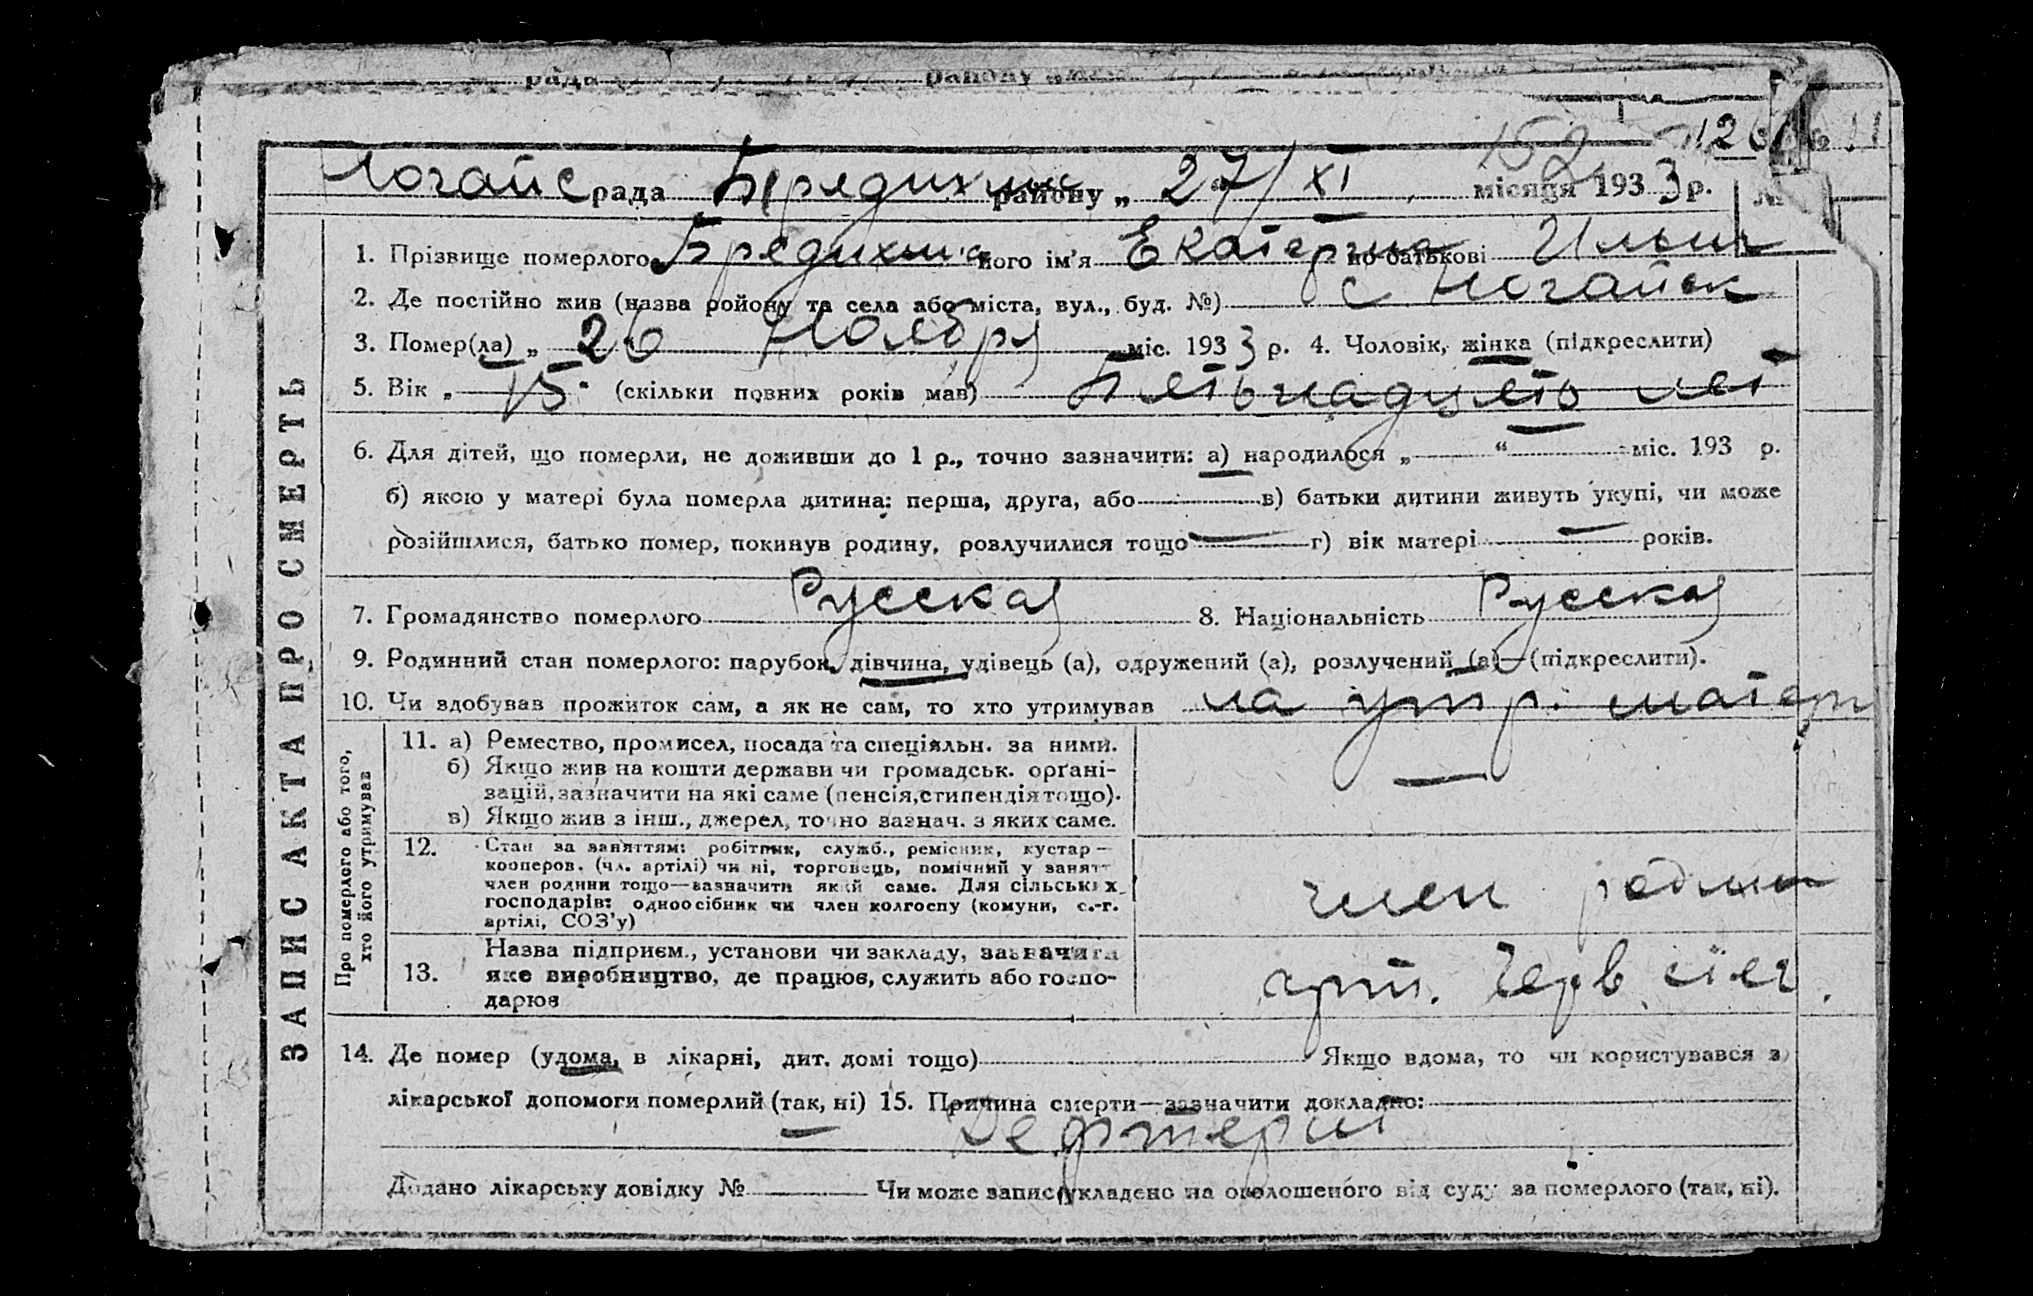 рада району
152 126
Ногайс рада Бердянськ району „ 27/XI місяця 1933 р.
1. Прізвище померлого Бредихина його ім'я Екатерина по батькові Ильин
2. Де постійно жив (назва ройону та села або міста, вул., буд. №) с Ногайск
3. Помер(ла) „ 26 Ноября міс. 1933 р. 4. Чоловік, жінка (підкреслити)
5. Вік „ 15 (скільки повних років мав) Пятьнадцять лет
6. Для дітей, що померли, не доживши до 1 р., точно зазначити: а) народилося „ — “ міс. 193 р.
б) якою у матері була померла дитина: перша, друга, або в) батьки дитини живуть укупі, чи може
розійшлися, батько помер, покинув родину, розлучилися тощо — г) вік матері — років.
7. Громадянство померлого Русская 8. Національність Русская
9. Родинний стан померлого: парубок, дівчина, удівець (а), одружений (а), розлучений (а)—(підкреслити).
10. Чи здобував прожиток сам, а як не сам, то хто утримував на утр. матер
ЗАПИС АКТА ПРО СМЕРТЬ
Про померлого або того,
хто його утримував
11. а) Ремество, промисел, посада та спеціяльн. за ними.
б) Якщо жив на кошти держави чи громадськ. орґані-
зацій, зазначити на які саме (пенсія, стипендія тощо).
в) Якщо жив з інш., джерел, точно зазнач. з яких саме.
—
12. Стан за заняттям: робітник, служб., ремісник, кустар—
кооперов. (чл. артілі) чи ні, торговець, помічний у занятт
член родини тощо—зазначити який саме. Для сільських
господарів: одноосібник чи член колгоспу (комуни, с.-г.
артілі, СОЗ'у)
член родини
13. Назва підприєм., установи чи закладу, зазначити
яке виробництво, де працює, служить або госпо-
дарює
арт. Черв
14. Де помер (удома, в лікарні, дит. домі тощо) Якщо вдома, то чи користувався з
лікарської допомоги померлий (так, ні) 15. Причина смерти—зазначити докладно:
— Дефтерит
Додано лікарську довідку № Чи може запис укладено на оголошеного від суду за померлого (так, ні).